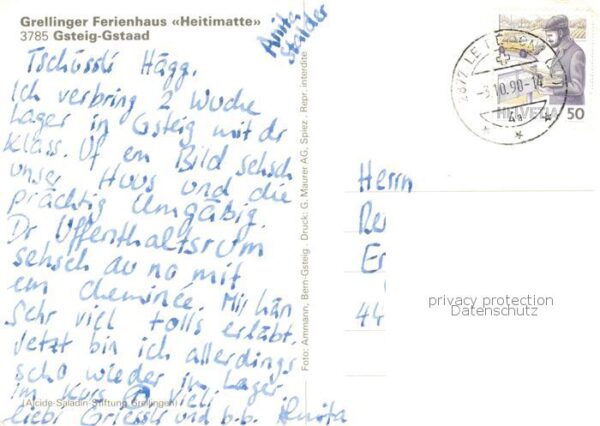 Grellinger Ferienhaus «Heitimatte»
3785 Gsteig-Gstaad
Anita
Stalder
Tschüssli Hägg.
Ich verbring 2 Wuche
Lager in Gsteig mit dr
Klass. Uf em Bild sehsch
unser Huus und die
prächtig Umgäbig.
Dr Uffenthaltsrum
sehsch au no mit
em Cheminée. Mir hän
sehr viel tolls erläbt.
Jetzt bin ich allerdings
scho wieder im Lager
im Kurs Vieli
liebi Griessli und b.b. Anita
(Alcide-Saladin-Stiftung Grellingen)
Foto: Ammann, Bern-Gsteig Druck: G. Maurer AG, Spiez. Repr. interdite
-3.10.90-14
HELVETIA 50
Herrn
44
privacy protection
Datenschutz